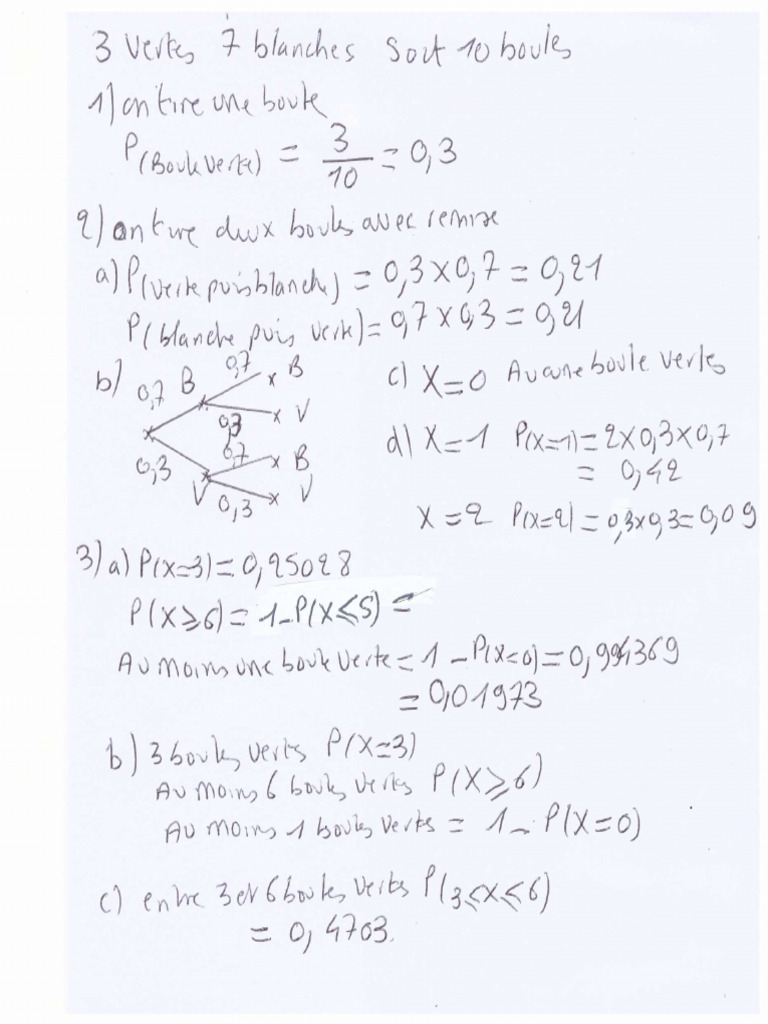 3 vertes 7 blanches soit 10 boules
1) on tire une boule
P(Boule verte) = 3/10 = 0,3
2) on tire deux boules avec remise
a) P(verte puis blanche) = 0,3 x 0,7 = 0,21
P(blanche puis verte) = 0,7 x 0,3 = 0,21
b) 0,7 B 0,7 B
0,3 V
0,3 V 0,7 B
0,3 V
c) X=0 Aucune boule vertes
d) X=1 P(X=1) = 2x0,3x0,7
= 0,42
X=2 P(X=2) = 0,3x0,3=0,09
3) a) P(X=3) = 0,25028
P(X⩾6) = 1-P(X⩽5) =
Au moins une boule verte = 1 - P(X=0) = 0,994369
= 0,01973
b) 3 boules vertes P(X=3)
Au moins 6 boules vertes P(X⩾6)
Au moins 1 boules vertes = 1 - P(X=0)
c) entre 3 et 6 boules vertes P(3⩽X⩽6)
= 0,4703.